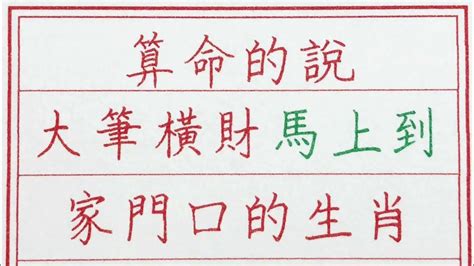 算命的說
大筆橫財馬上到
家門口的生肖